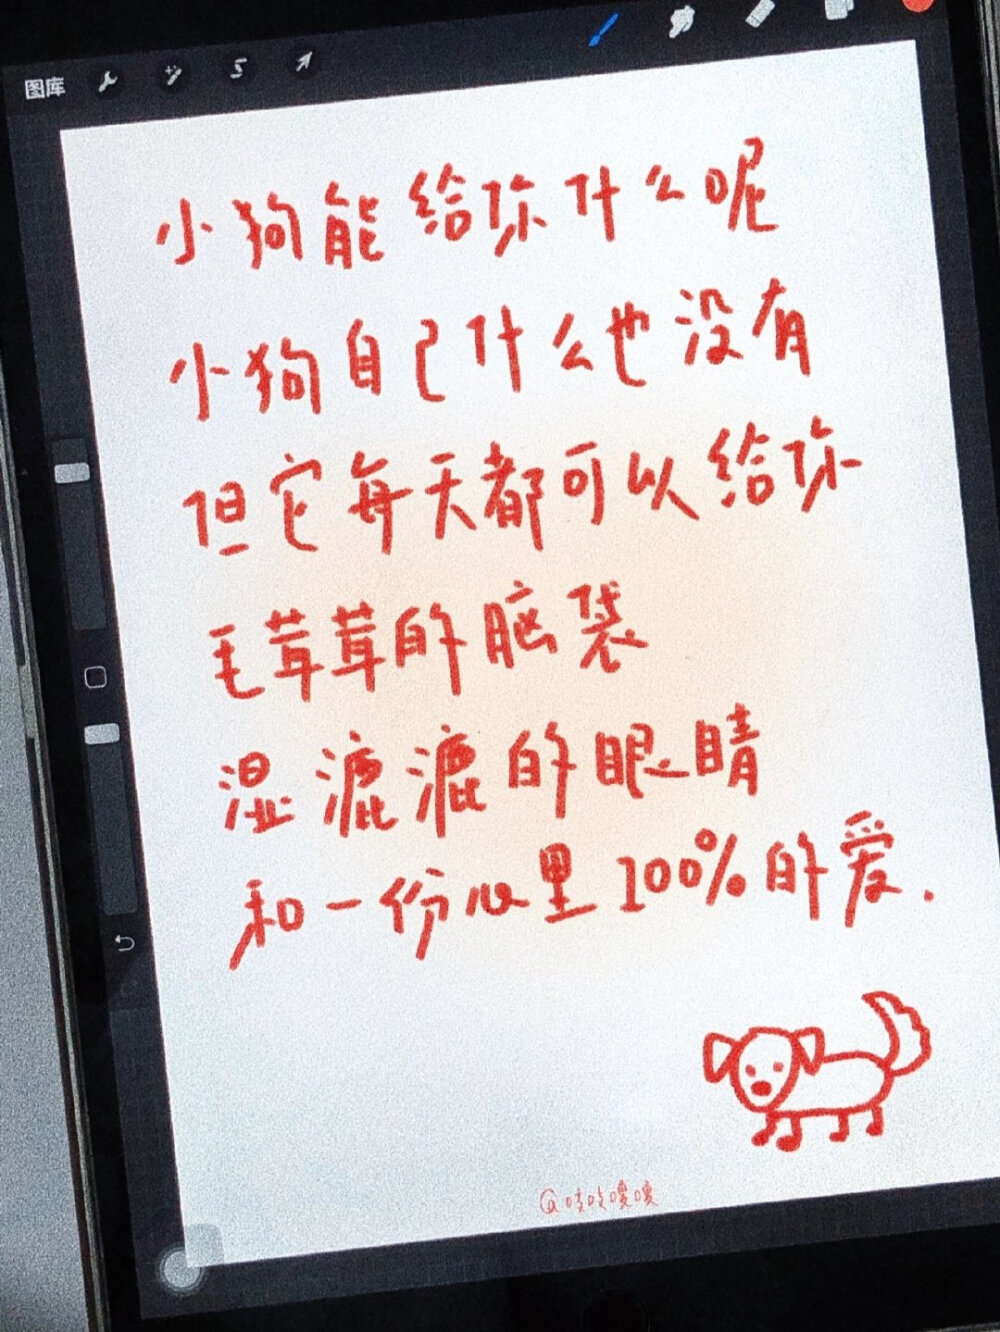 图库
小狗能给你什么呢
小狗自己什么也没有
但它每天都可以给你
毛茸茸的脑袋
湿漉漉的眼睛
和一份心里100%的爱.